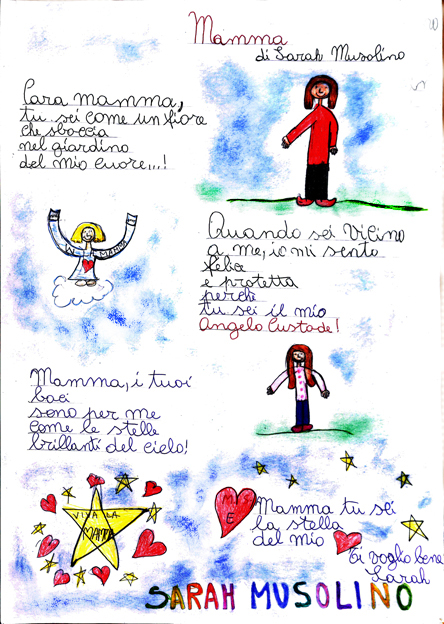 Mamma
di Sarah Musolino
Cara mamma,
tu sei come un fiore
che sboccia
nel giardino
del mio cuore...!
W LA MAMMA
Quando sei vicino
a me, io mi sento
felice
e protetta
perché
tu sei il mio
Angelo Custode!
Mamma, i tuoi
baci
sono per me
come le stelle
brillanti del cielo!
VIVA LA
MAMMA
M E
Mamma tu sei
la stella
del mio
Ti voglio bene
Sarah
SARAH MUSOLINO